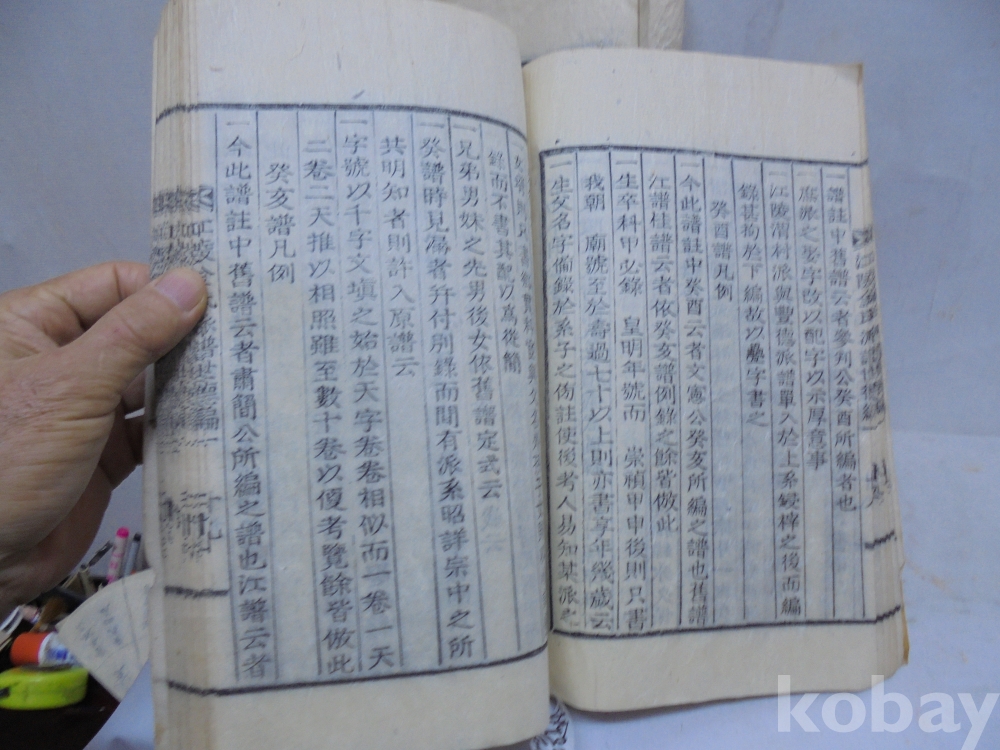 一譜註中舊譜云者參判公癸酉所編者也
庶派之娶字改以配字以示厚意事
一江陵渭村派與豐德派譜單入於上系鋟梓之後而編
錄甚拘於下編故以 字書之
癸酉譜凡例
一今此譜註中癸酉云者文憲公癸亥所編之譜也舊譜
江譜桂譜云者依癸亥譜例錄之餘皆倣此
一生卒科甲必錄 皇明年號而 崇禎甲申後則只書
我朝 廟號至於壽過七十以上則亦書享年幾歲云
一生父名字備錄於系子之傍註使後考人易知某派之
錄而不書其配以爲從簡
一兄弟男妹之先男後女依舊譜定式云
一癸譜時見漏者幷付別錄而間有派系昭詳宗中之所
共明知者則許入原譜云
一字號以千字文塡之始於天字卷卷相似而一卷一天
二卷二天推以相照雖至數十卷以便考覽餘皆倣此
癸亥譜凡例
一今此譜註中舊譜云者肅簡公所編之譜也江譜云者
kobay